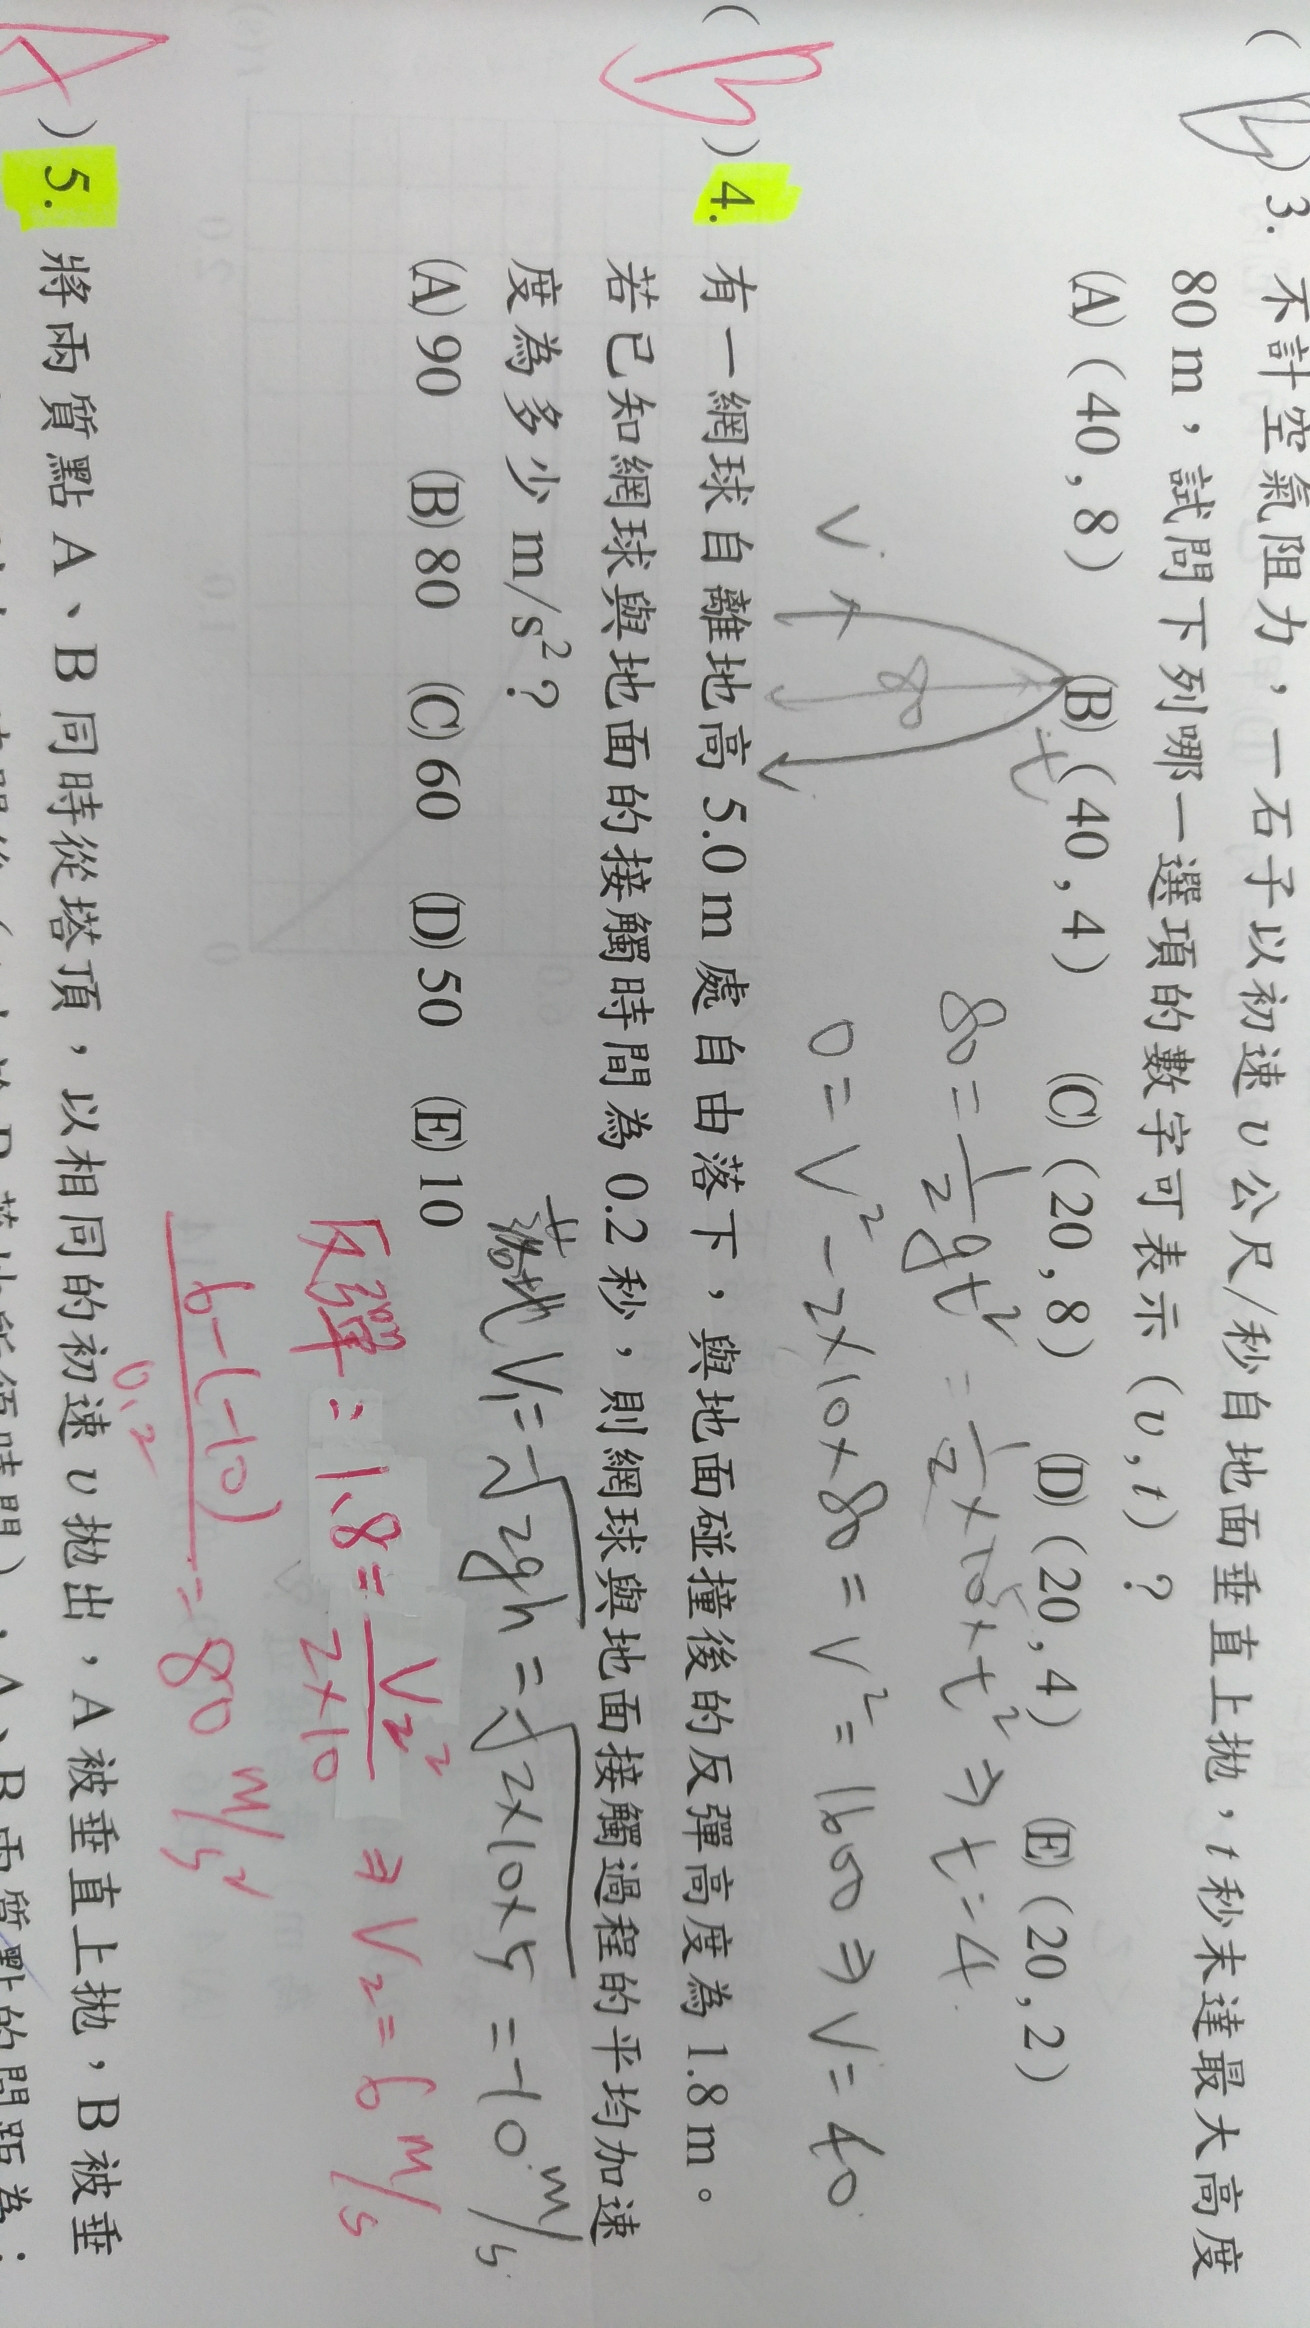 (B) 3. 不計空氣阻力，一石子以初速 v 公尺/秒自地面垂直上拋，t 秒末達最大高度
80 m，試問下列哪一選項的數字可表示 (v , t)？
(A) (40 , 8) (B) (40 , 4) (C) (20 , 8) (D) (20 , 4) (E) (20 , 2)
80 = 1/2 gt² = 1/2 × 10 × t² ⇒ t = 4
V 80 t
0 = V² - 2×10×80 = V² = 1600 ⇒ V = 40
(B) 4. 有一網球自離地高 5.0 m 處自由落下，與地面碰撞後的反彈高度為 1.8 m。
若已知網球與地面的接觸時間為 0.2 秒，則網球與地面接觸過程的平均加速
度為多少 m/s²？
落地 V₁ = -√2gh = -√2×10×5 = -10 m/s
(A) 90 (B) 80 (C) 60 (D) 50 (E) 10
反彈：1.8 = V₂²/2×10 ⇒ V₂ = 6 m/s
6-(-10)/0.2 = 80 m/s²
) 5. 將兩質點 A、B 同時從塔頂，以相同的初速 v 拋出，A 被垂直上拋，B 被垂
A、B 兩質點的間距為：